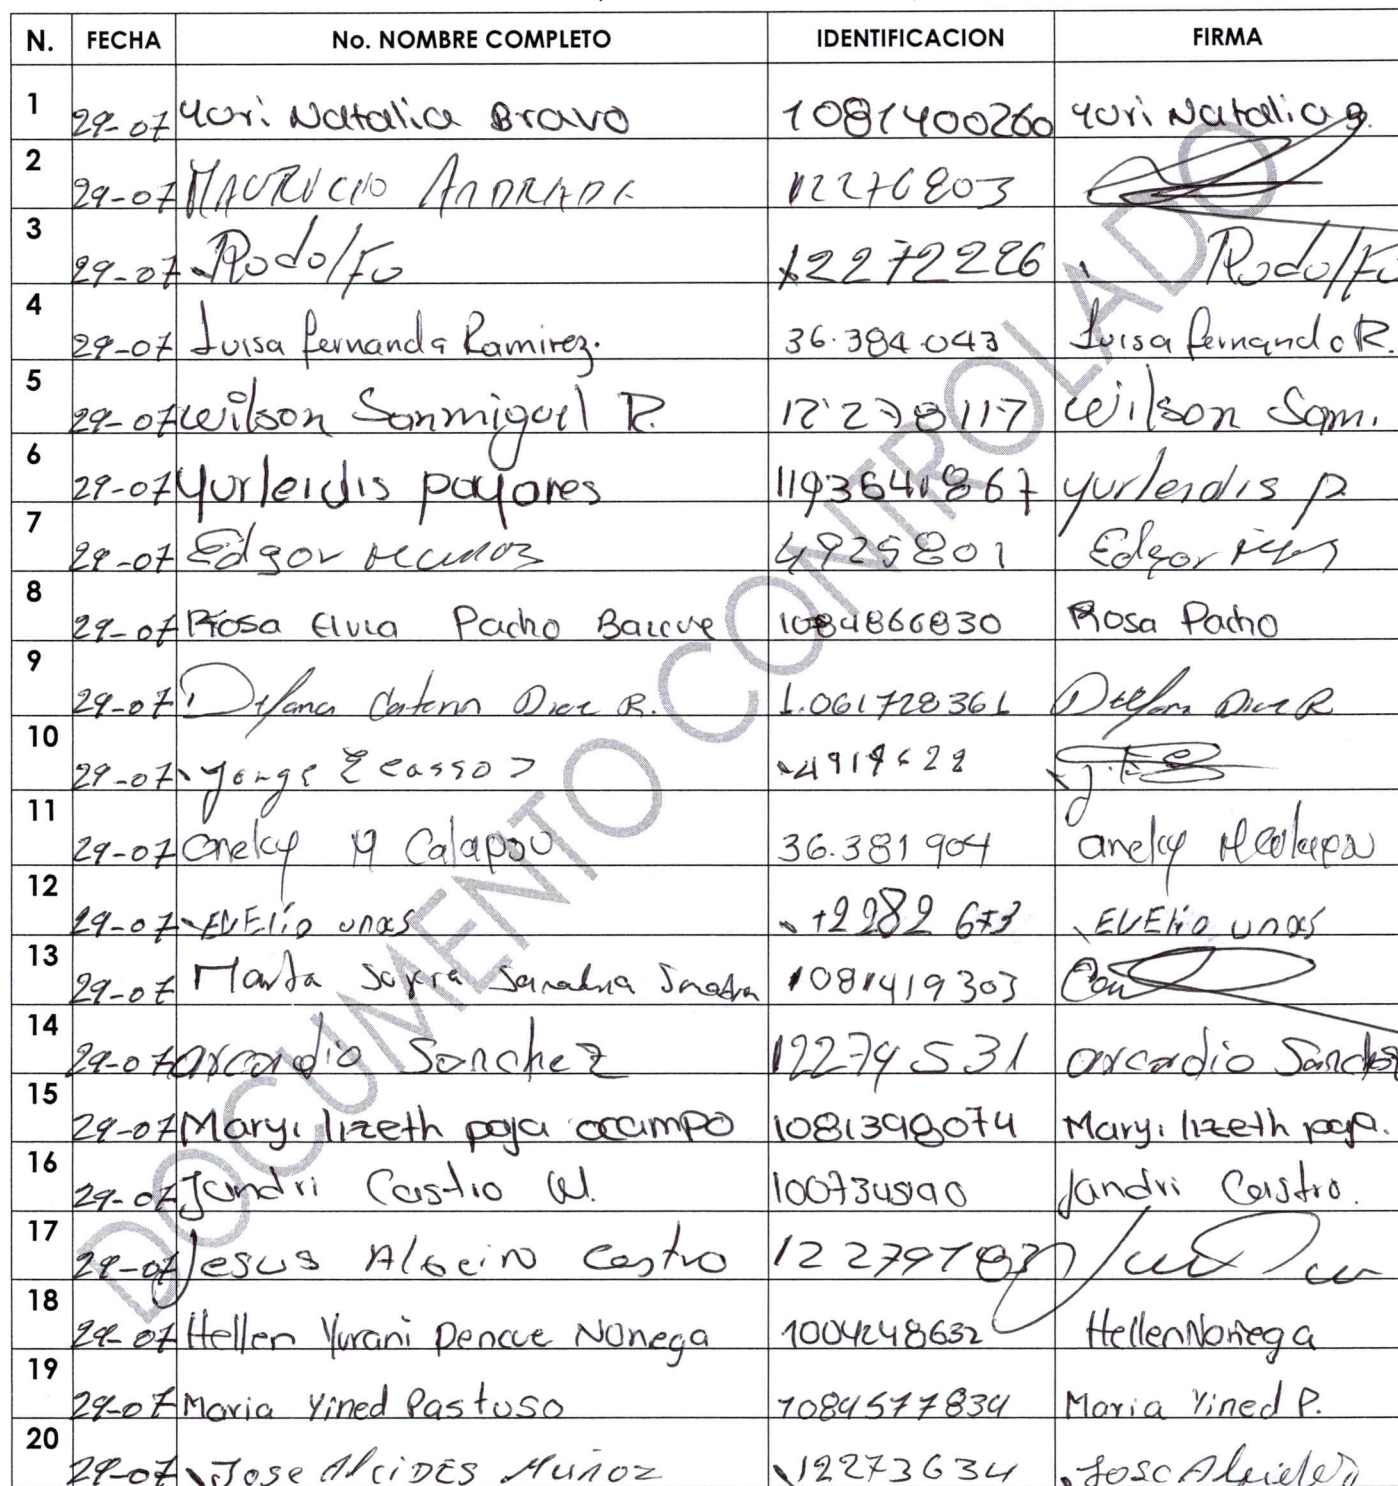 N. FECHA No. NOMBRE COMPLETO IDENTIFICACION FIRMA
1 29-07 Yuri Natalia Bravo 1081400260 Yuri Natalia B.
2 29-07 MAURICIO ANDRADE 12276803
3 29-07 Rodolfo 12272226 Rodolfo
4 29-07 Luisa fernanda Ramirez. 36.384.043 Luisa fernanda R.
5 29-07 Wilson Sanmiguel R. 12278117 Wilson Sanm.
6 29-07 Yurleidis payares 1193641867 yurleidis p.
7 29-07 Edgar 4925801 Edgar
8 29-07 Rosa Elvia Pacho Baicue 1084866830 Rosa Pacho
9 29-07 Diaz R. 1.061728361 Diaz R
10 29-07 yorge
11 29-07 anelcy M Calapsu 36.381904 anelcy
12 29-07 EVElio unas 12282673 EVElio unas
13 29-07 Marta 1081419303
14 29-07 arcadio Sanchez 12274531 arcadio Sanchez
15 29-07 Maryi lizeth paja ocampo 1081398074 Maryi lizeth paja.
16 29-07 Jandri Castro W. Jandri Castro.
17 29-07 Jesus Albeiro Castro
18 29-07 Hellen Yurani Pencue Noriega 1004248632 Hellen Noriega
19 29-07 Maria Yined Pastuso 1084577834 Maria Yined P.
20 29-07 Jose AlciDES Muñoz 12273634 Jose
DOCUMENTO CONTROLADO